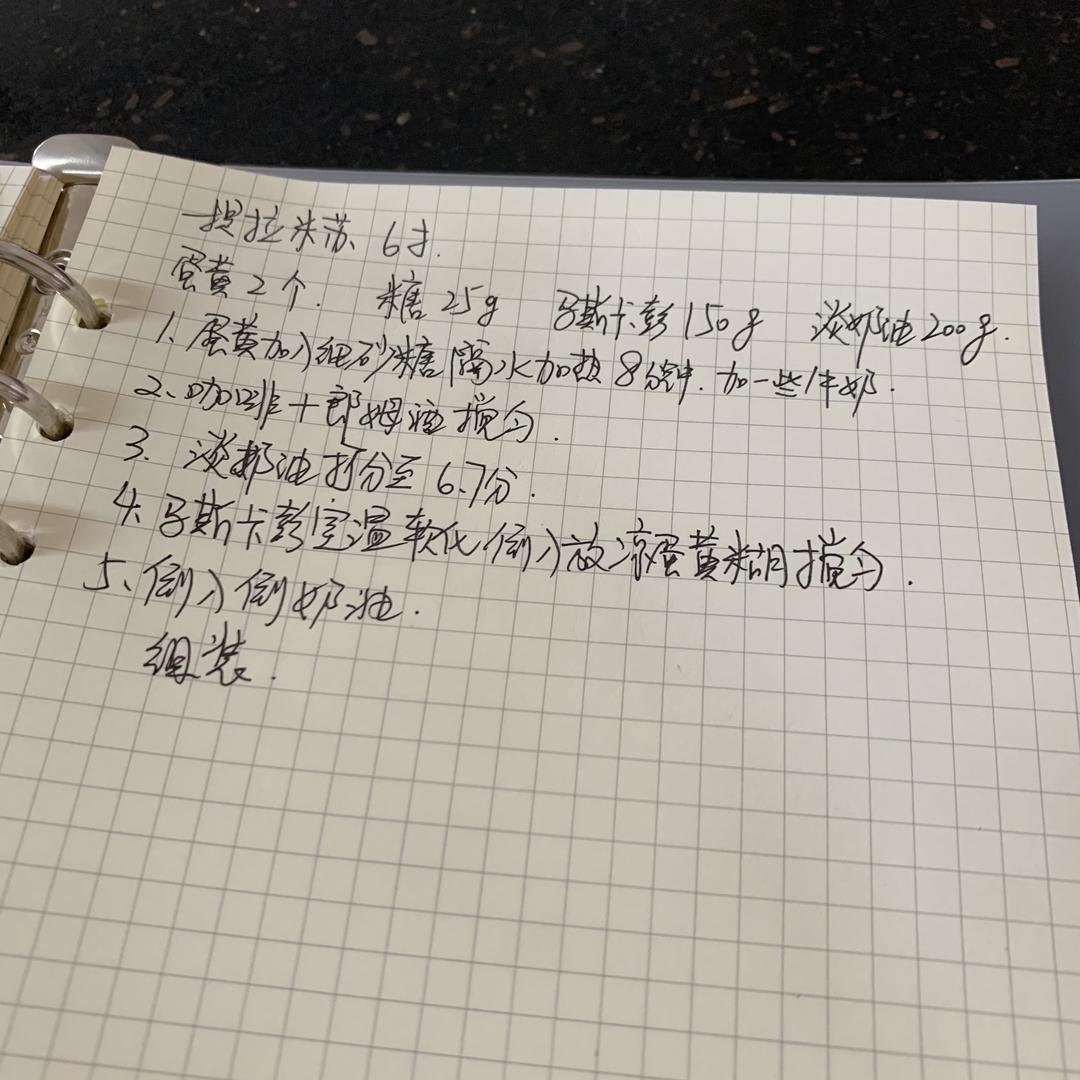 提拉米苏 6寸.
蛋黄2个. 糖25g 马斯卡彭150g 淡奶油200g.
1. 蛋黄加入细砂糖隔水加热8分钟. 加一些牛奶.
2. 咖啡+郎姆酒搅匀.
3. 淡奶油打分至6.7分.
4. 马斯卡彭室温软化倒入放凉蛋黄糊搅匀.
5. 倒入倒奶油.
组装.